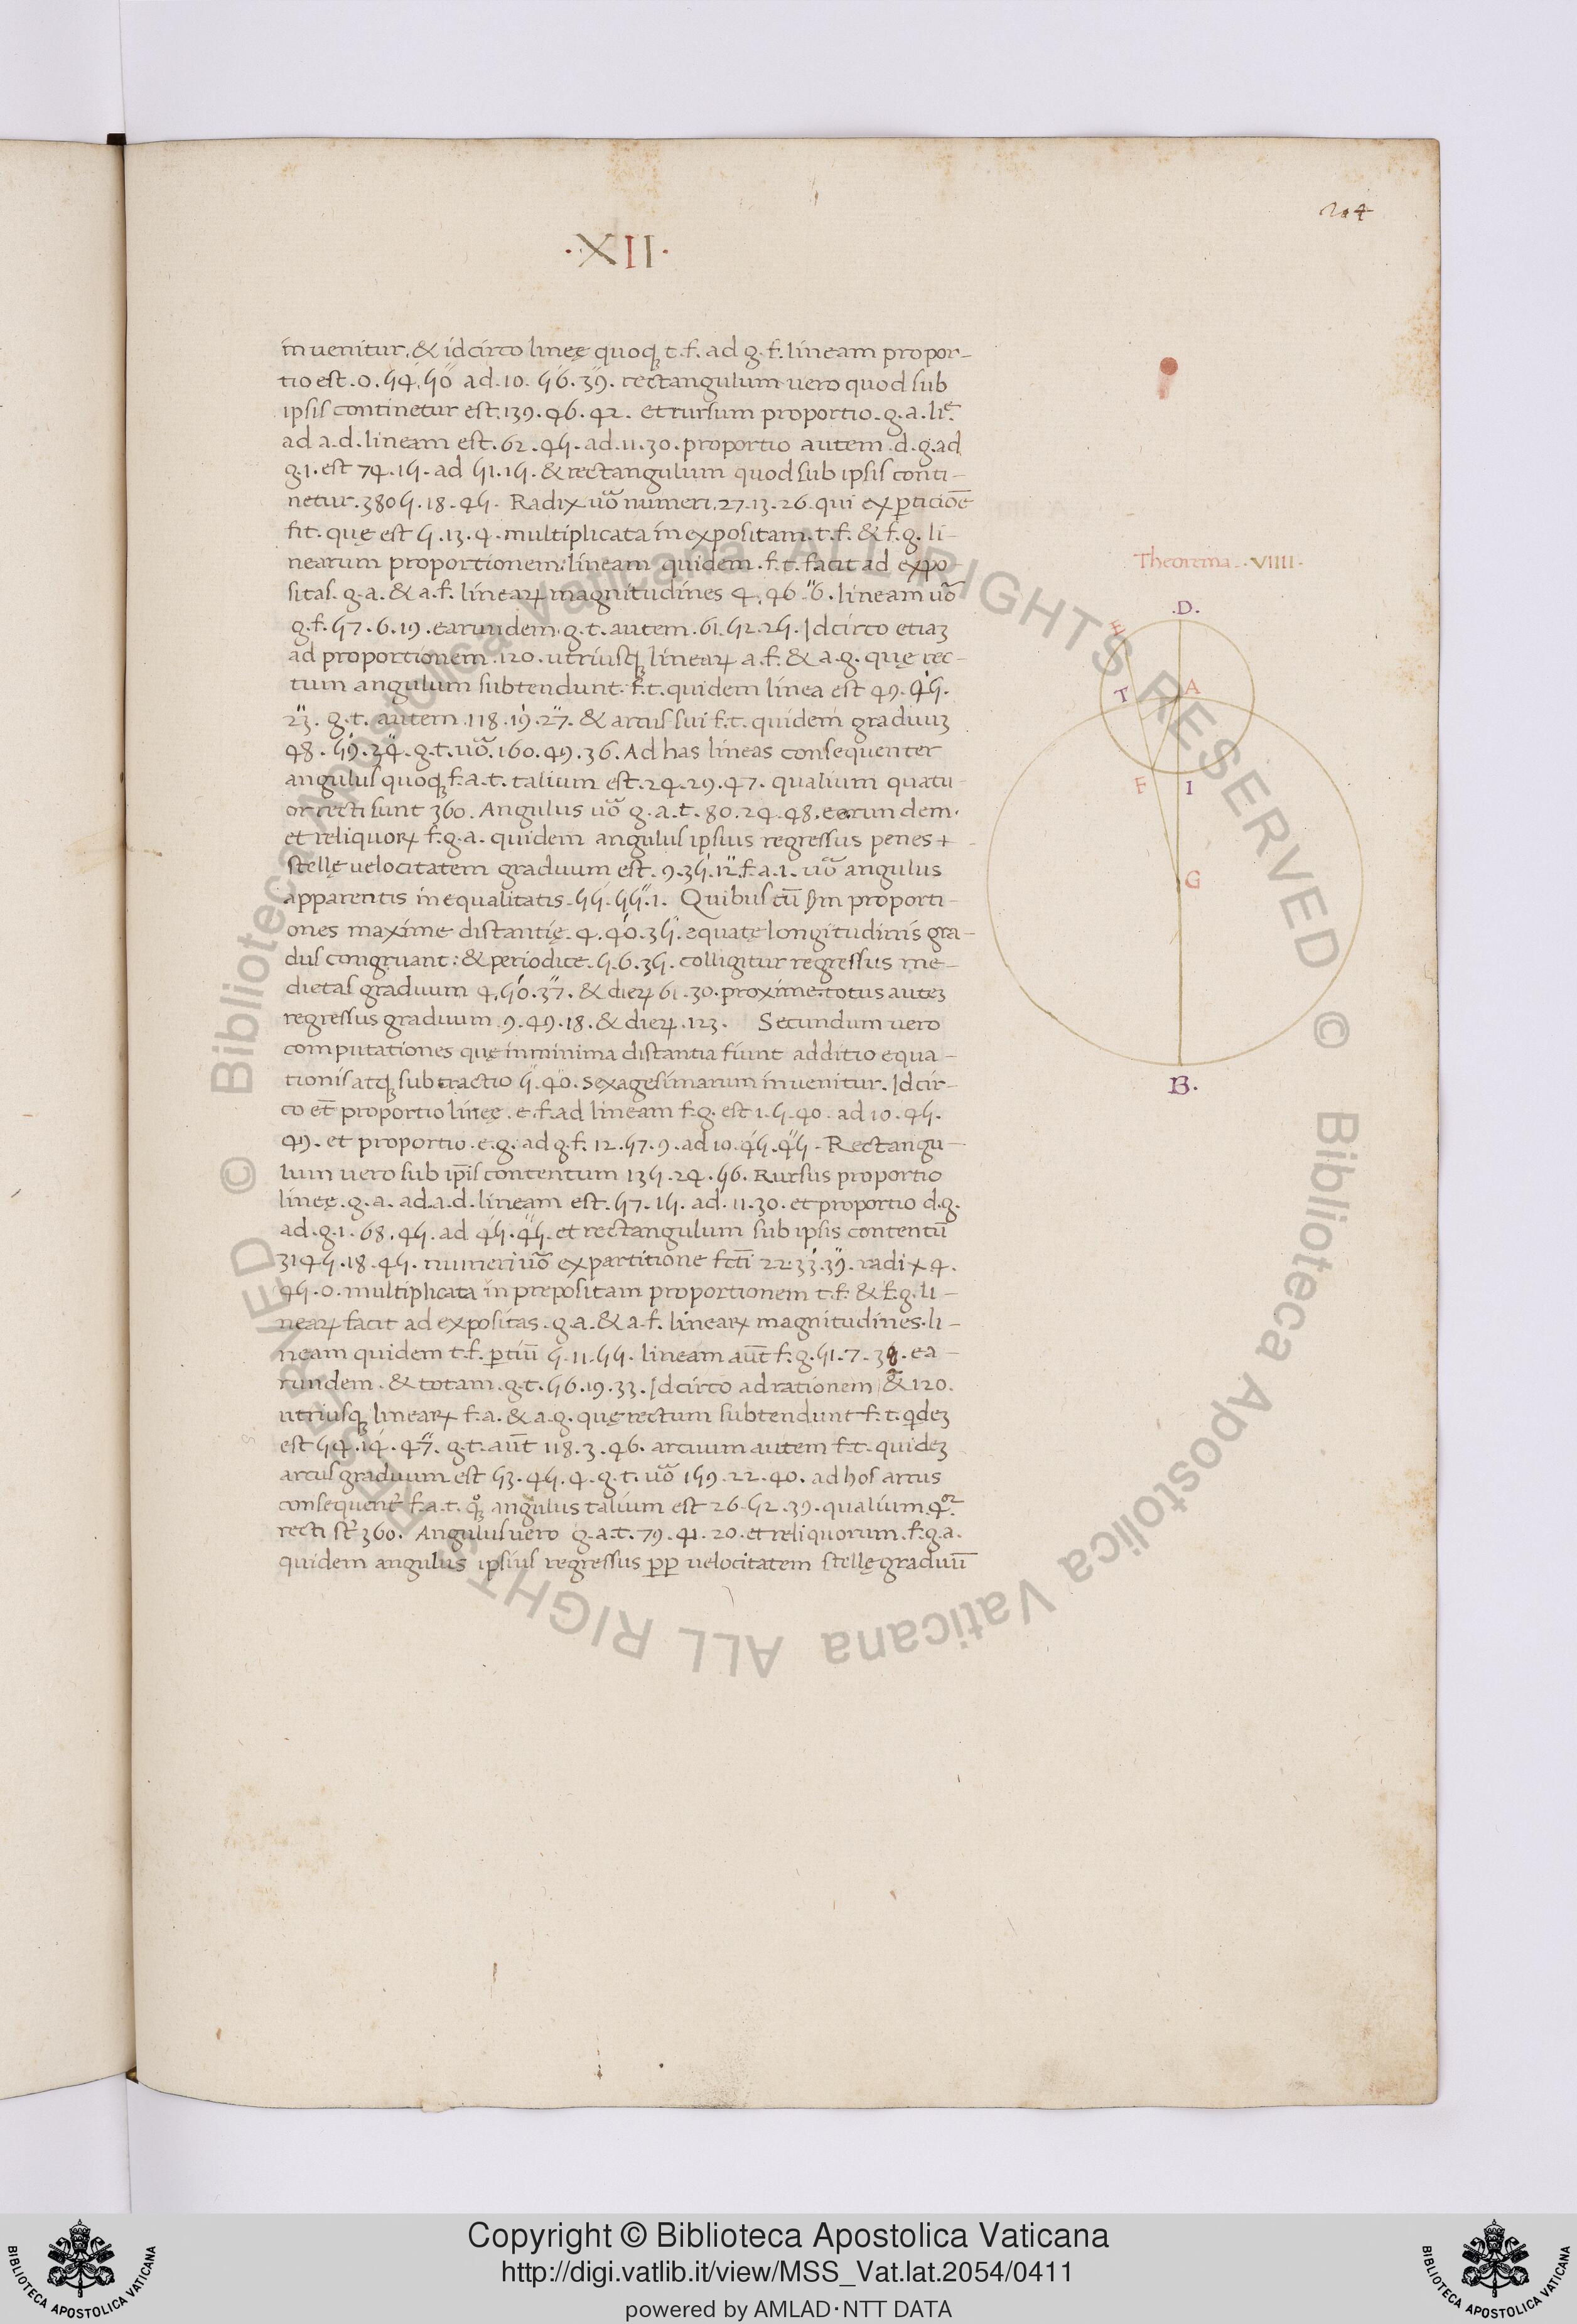 204
·XII·
inuenitur. & idcirco lineę quoq; t. f. ad g. f. lineam propor-
tio est. 0. 54. 50 ad. 10. 56. 39. rectangulum uero quod sub
ipsis continetur est. 139. 46. 42. et rursum proportio. g. a. liē
ad a. d. lineam est. 62. 45. ad. 11. 30. proportio autem. d. g. ad
g. 1. est 74. 15. ad 51. 15. & rectangulum quod sub ipsis conti-
netur. 3805. 18. 45. Radix uō numeri. 27. 13. 26. qui ex p̱ticiōe
fit. quę est 5. 13. 4. multiplicata in expositam. t. f. & f. g. li-
nearum proportionem: lineam quidem. f. t. facit ad expo
sitas. g. a. & a. f. linearꝝ magnitudines 4. 46. 6. lineam uō
g. f. 57. 6. 19. earundem. g. t. autem. 61. 52. 25. Idcirco etiaꝫ
ad proportionem. 120. utriusq; linearꝝ a. f. & a. g. quę rec-
tum angulum subtendunt. f. t. quidem linea est 49. 45.
23. g. t. autem. 118. 19. 27. & arcus sui f. t. quidem graduuꝫ
48. 59. 34. g. t. uō. 160. 49. 36. Ad has lineas consequenter
angulus quoq; f. a. t. talium est. 24. 29. 47. qualium quatu
or recti sunt 360. Angulus uō g. a. t. 80. 24. 48. eorundem.
et reliquorꝝ f. g. a. quidem angulus ipsius regressus penes +
stellę uelocitatem graduum est. 9. 35. 12. f. a. 1. uō angulus
apparentis inequalitatis. 55. 55. 1. Quibus cū ẜm proporti-
ones maxime distantię. 4. 40. 35. equatę longitudinis gra-
dus congruant: & periodice. 5. 6. 35. colligitur regressus me-
dietas graduum 4. 50. 37. & dierꝝ 61. 30. proxime. totus auteꝫ
regressus graduum 9. 49. 18. & dierꝝ. 123. Secundum uero
computationes quę in minima distantia fiunt additio equa-
tionis atq; subtractio 5. 40. sexagesimarum inuenitur. Idcir-
co et̄ proportio lineę. e. f. ad lineam f. g. est 1. 5. 40. ad 10. 45.
49. et proportio. e. g. ad g. f. 12. 57. 9. ad 10. 45. 45. Rectangu-
lum uero sub ip̄is contentum 135. 24. 56. Rursus proportio
lineę. g. a. ad. a. d. lineam est. 57. 15. ad. 11. 30. et proportio d. g.
ad. g. 1. 68. 45. ad 45. 45. et rectangulum sub ipsis contentū
3145. 18. 45. numeri uō ex partitione fc̄ti 22. 33. 39. radix 4.
45. 0. multiplicata in prepositam proportionem t. f. & f. g. li-
nearꝝ facit ad expositas. g. a. & a. f. linearꝝ magnitudines. li-
neam quidem t. f. p̱tiū 5. 11. 55. lineam aūt f. g. 51. 7. 38. ea-
rundem. & totam. g. t. 56. 19. 33. Idcirco ad rationem & 120.
utriusq; linearꝝ f. a. & a. g. quę rectum subtendunt f. t. qideꝫ
est 54. 14. 47. g. t. aūt 118. 3. 46. arcuum autem f. t. quideꝫ
arcus graduum est 53. 45. 4. g. t. uō 159. 22. 40. ad hos arcus
consequent̄ f. a. t. qꝫ angulus talium est 26. 52. 39. qualium. qor
recti st̄ 360. Angulus uero g. a. t. 79. 41. 20. et reliquorum. f. g. a.
quidem angulus ipsius regressus ꝓꝑ uelocitatem stellę graduū
Theorema. ·VIIII·
.D.
E
T
A
F
I
G
B.
© Biblioteca Apostolica Vaticana ALL RIGHTS RESERVED
© Biblioteca Apostolica Vaticana ALL RIGHTS RESERVED
Copyright © Biblioteca Apostolica Vaticana
http://digi.vatlib.it/view/MSS_Vat.lat.2054/0411
powered by AMLAD·NTT DATA
BIBLIOTECA APOSTOLICA VATICANA
BIBLIOTECA APOSTOLICA VATICANA